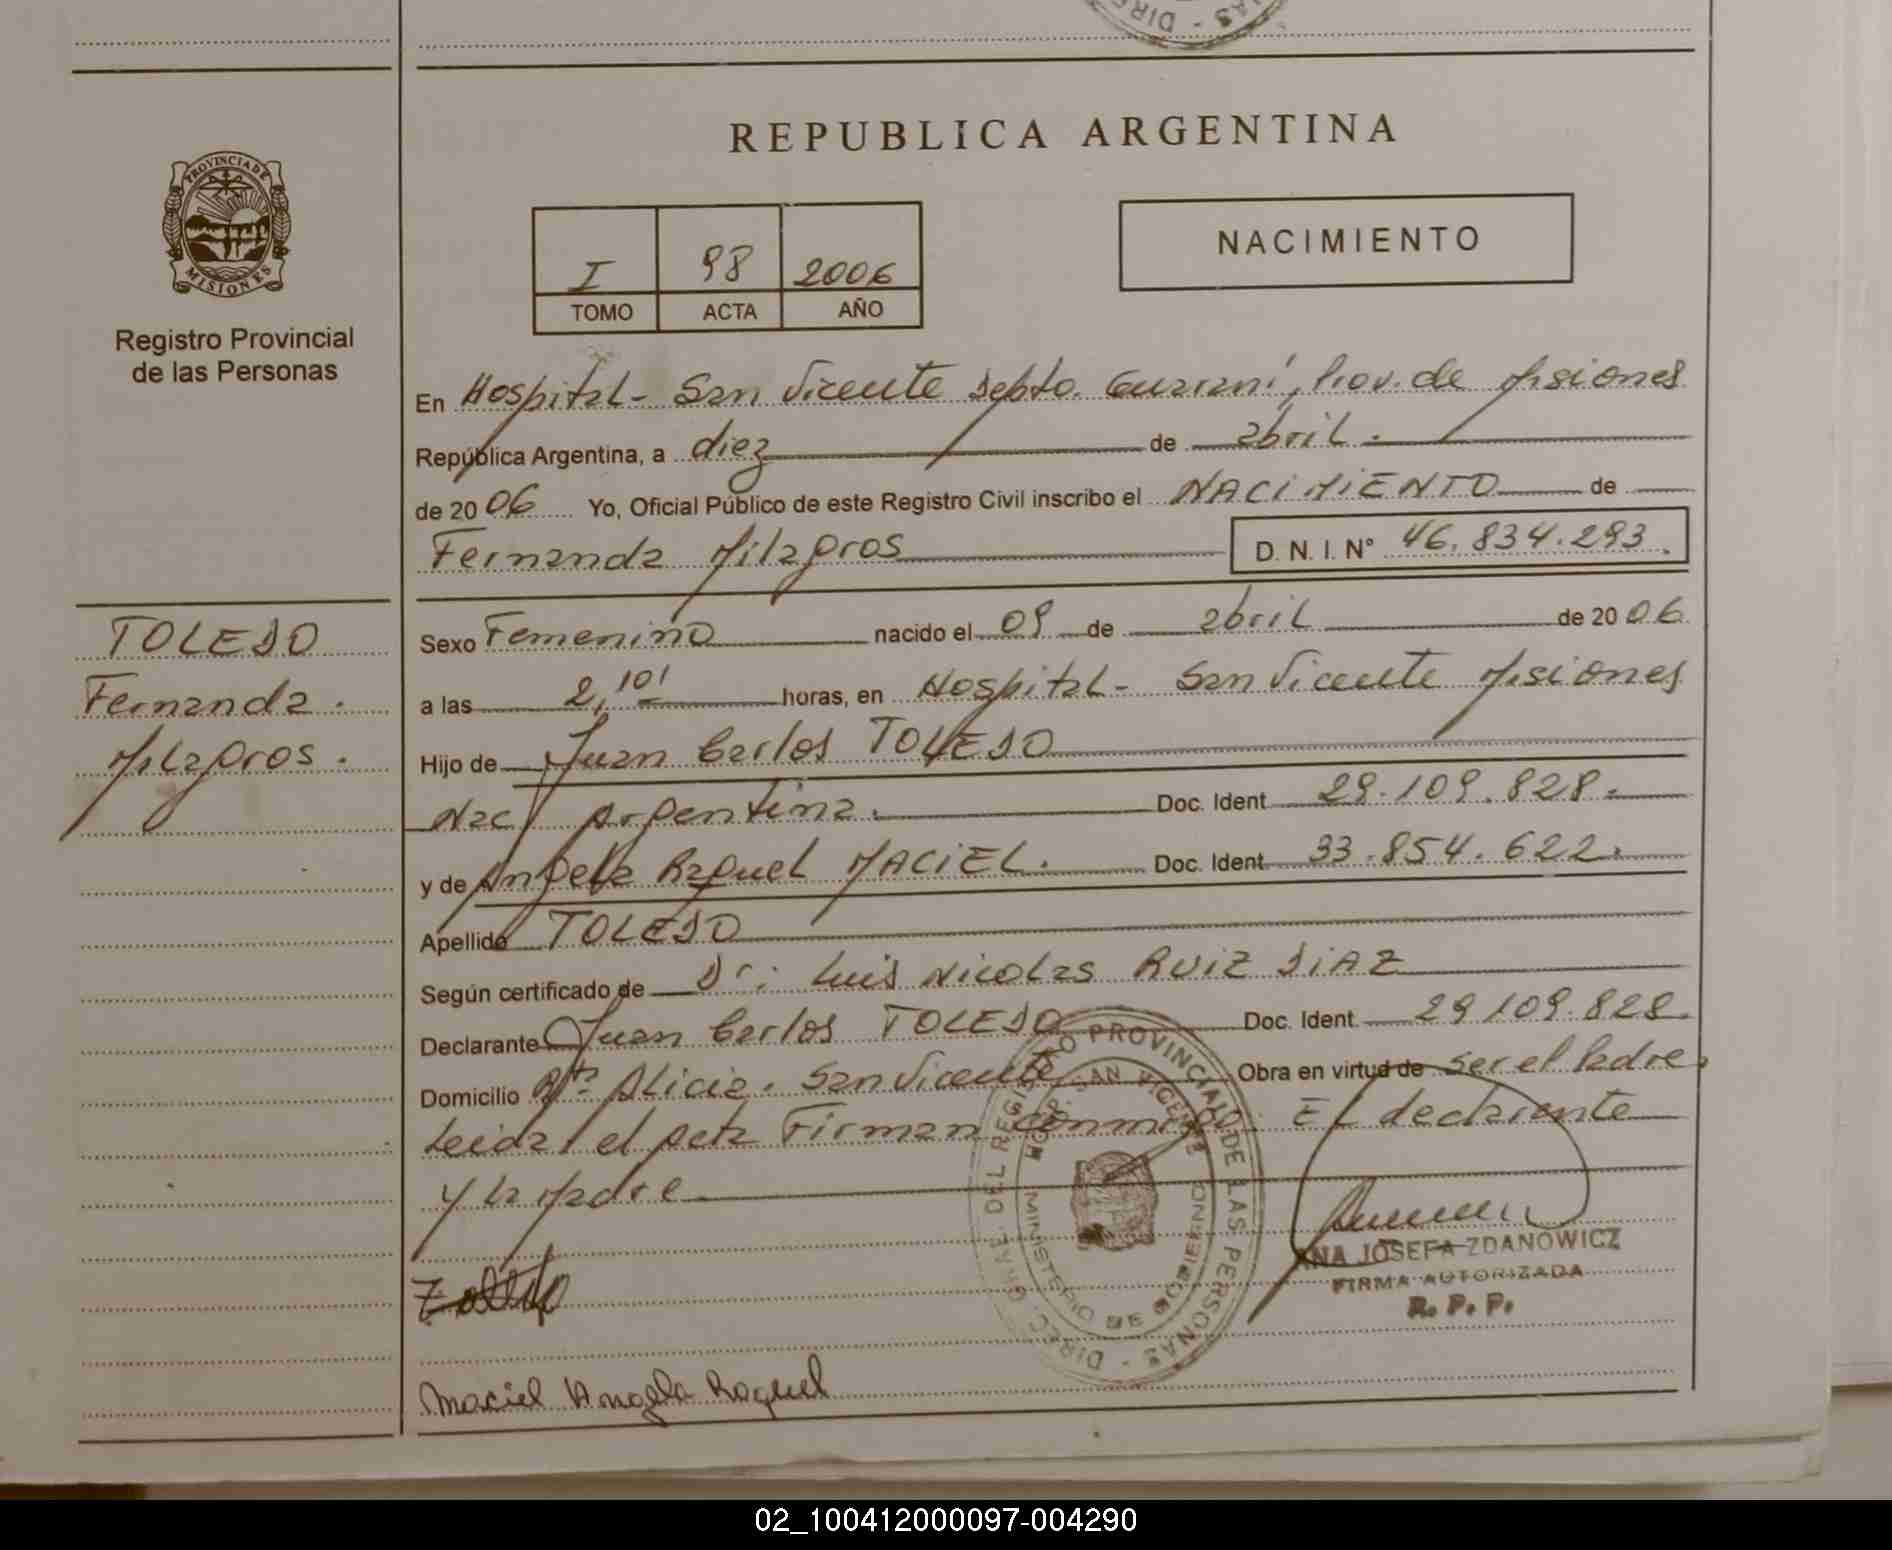 REPUBLICA ARGENTINA
PROVINCIA DE
MISIONES
Registro Provincial
de las Personas
I 98 2006
TOMO ACTA AÑO
NACIMIENTO
En Hospital - San Vicente Depto. Guaraní, Prov. de Misiones
República Argentina, a diez de abril.
de 20 06 Yo, Oficial Público de este Registro Civil inscribo el NACIMIENTO de
Fernanda Milagros
D. N. I. N° 46.834.293.
TOLEDO
Fernanda.
Milagros.
Sexo Femenino nacido el 09 de abril de 20 06
a las 2,10' horas, en Hospital - San Vicente Misiones
Hijo de Juan Carlos TOLEDO
Nac/ Argentina. Doc. Ident 29.109.828.
y de Angela Raquel MACIEL. Doc. Ident. 33.854.622.
Apellido TOLEDO
Según certificado de Dr. Luis Nicolas RUIZ DIAZ
Declarante Juan Carlos TOLEDO Doc. Ident. 29 109.828.
Domicilio Alicia. San Vicente Obra en virtud de ser el Padre
Leida el acta Firman conmigo: El declarante
y la Madre
DIREC. GRAL. DEL REGISTRO PROVINCIAL DE LAS PERSONAS
HOSP. SAN VICENTE
MINISTERIO DE GOBIERNO
ANA JOSEFA ZDANOWICZ
FIRMA AUTORIZADA
R. P. P.
Maciel Angela Raquel
02_100412000097-004290